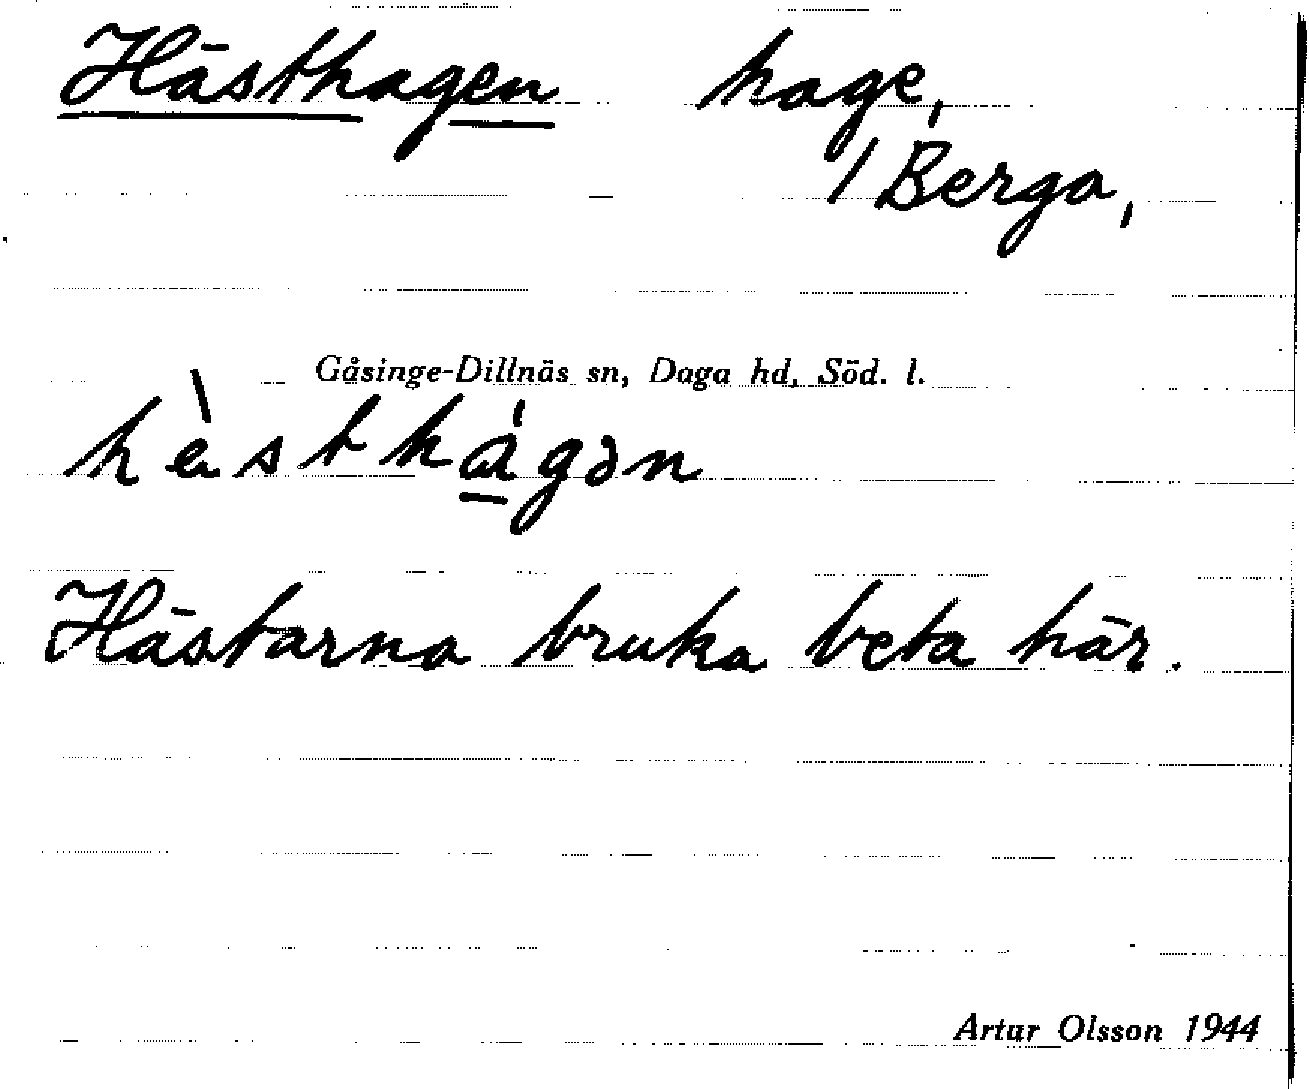 Hästhagen hage,
/ Berga,
Gåsinge-Dillnäs sn, Daga hd, Söd. l.
hàsthágən
Hästarna bruka beta här.
Artur Olsson 1944